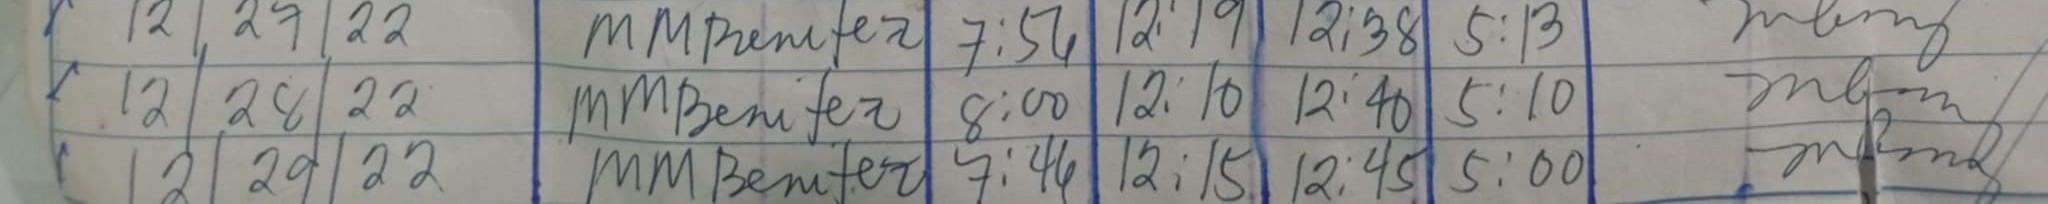 12/27/22 MMBenitez 7:56 12:19 12:38 5:13
12/28/22 MMBenitez 8:00 12:10 12:40 5:10
12/29/22 MMBenitez 7:46 12:15 12:45 5:00